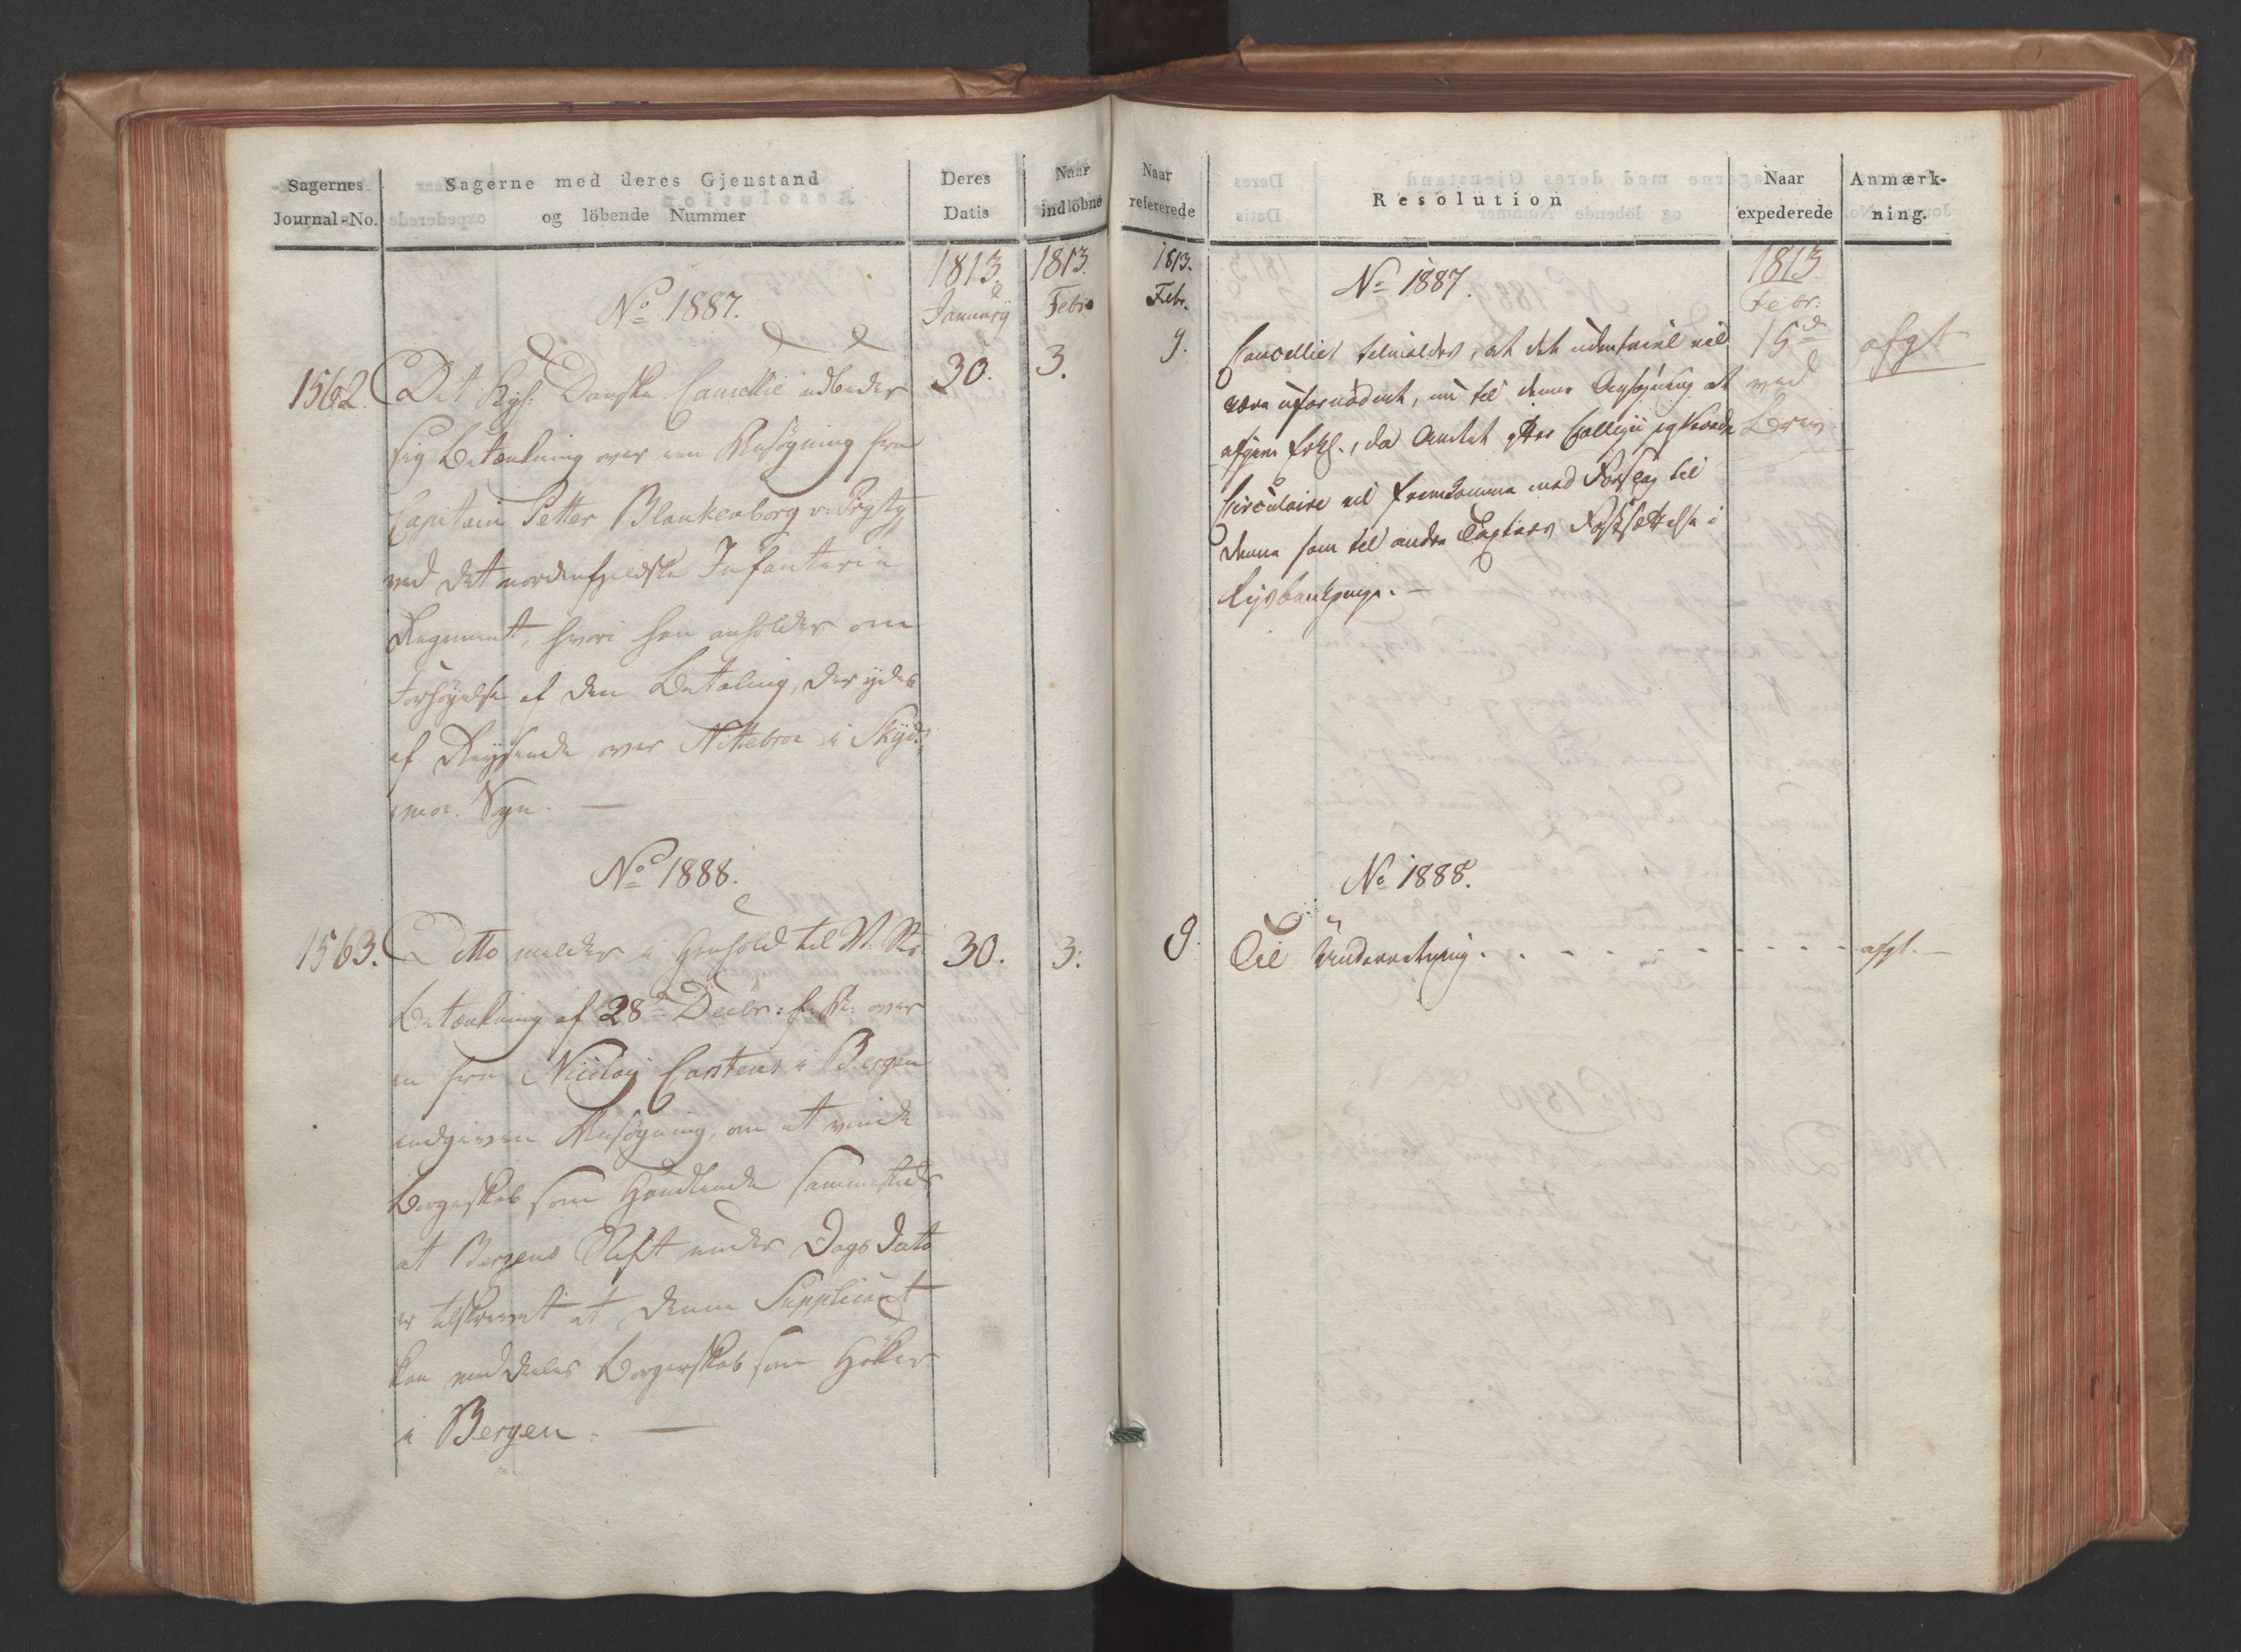 Sagernes
Journal-No.
Sagerne med deres Gjenstand
og löbende Nummer
Deres
Datis
Naar
indlöbne
1813.
January
1813.
Febr.
No 1887.
1562.
Det Kgl. Danske Cancellie udbeder
sig Betænkning over een Ansögning fra
Capitain Petter Blankenborg v. Prydtz
ved det nordenfjeldske Infanterie
Regiment, hvori han anholder om
Forhöyelse af den Betaling, der ydes
af Reysende over Nittebroe i Skyds-
moe Sogn. —
30.
3.
No 1888.
1563.
Ditto melder i Henhold til
Betænkning af 28de Decbr: f. A. over
en fra Nicolay Carstens i Bergen
indgiven Ansögning, om at vinde
Borgerskab som Handlende sammesteds
at Bergens Stift under Dags Dato
er tilskrevet at denne Supplicant
kan meddeles Borgerskab som Höker
i Bergen. —
30.
3.
Naar
refererede
Resolution
Naar
expederede
Anmærk-
ning.
1813.
Febr.
1813
Febr:
No 1887.
9.
Cancelliet tilmeldes, at det udentvivl vil
være ufornødent, nu til denne Ansøgning at
afgive Erkl., da Amtet efter Collegii
Circulaire vil fremkomme med Forslag til
denne som til andre Taxters Fastsættelse i
Rigsbankpenge. —
15de
ved
Brev
afgt
No 1888.
9.
Til Underretning. - - - - - - - - -
afgt. —